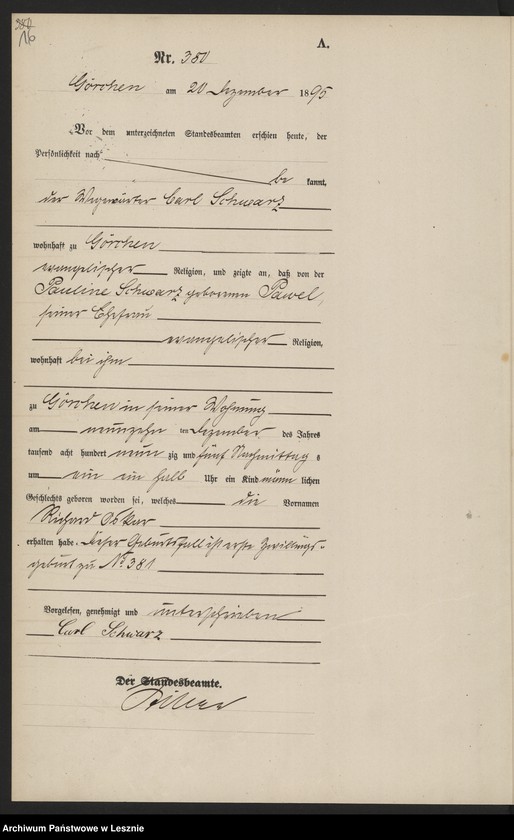 16
A.
Nr. 380
Görchen am 20 Dezember 1895
Vor dem unterzeichneten Standesbeamten erschien heute, der
Persönlichkeit nach
be kannt,
der Wegewärter Carl Schwarz
wohnhaft zu Görchen
evangelischer Religion, und zeigte an, daß von der
Pauline Schwarz geborenen Pawel,
seiner Ehefrau
evangelischer Religion,
wohnhaft bei ihm
zu Görchen in seiner Wohnung
am neunzehn ten Dezember des Jahres
tausend acht hundert neun zig und fünf Nachmittag s
um ein ein halb Uhr ein Kind männ lichen
Geschlechts geboren worden sei, welches die Vornamen
Richard Oskar
erhalten habe. Dieser Geburtsfall ist erste Zwillings-
geburt zu No 381
Vorgelesen, genehmigt und unterschrieben
Carl Schwarz
Der Standesbeamte.
Archiwum Państwowe w Lesznie